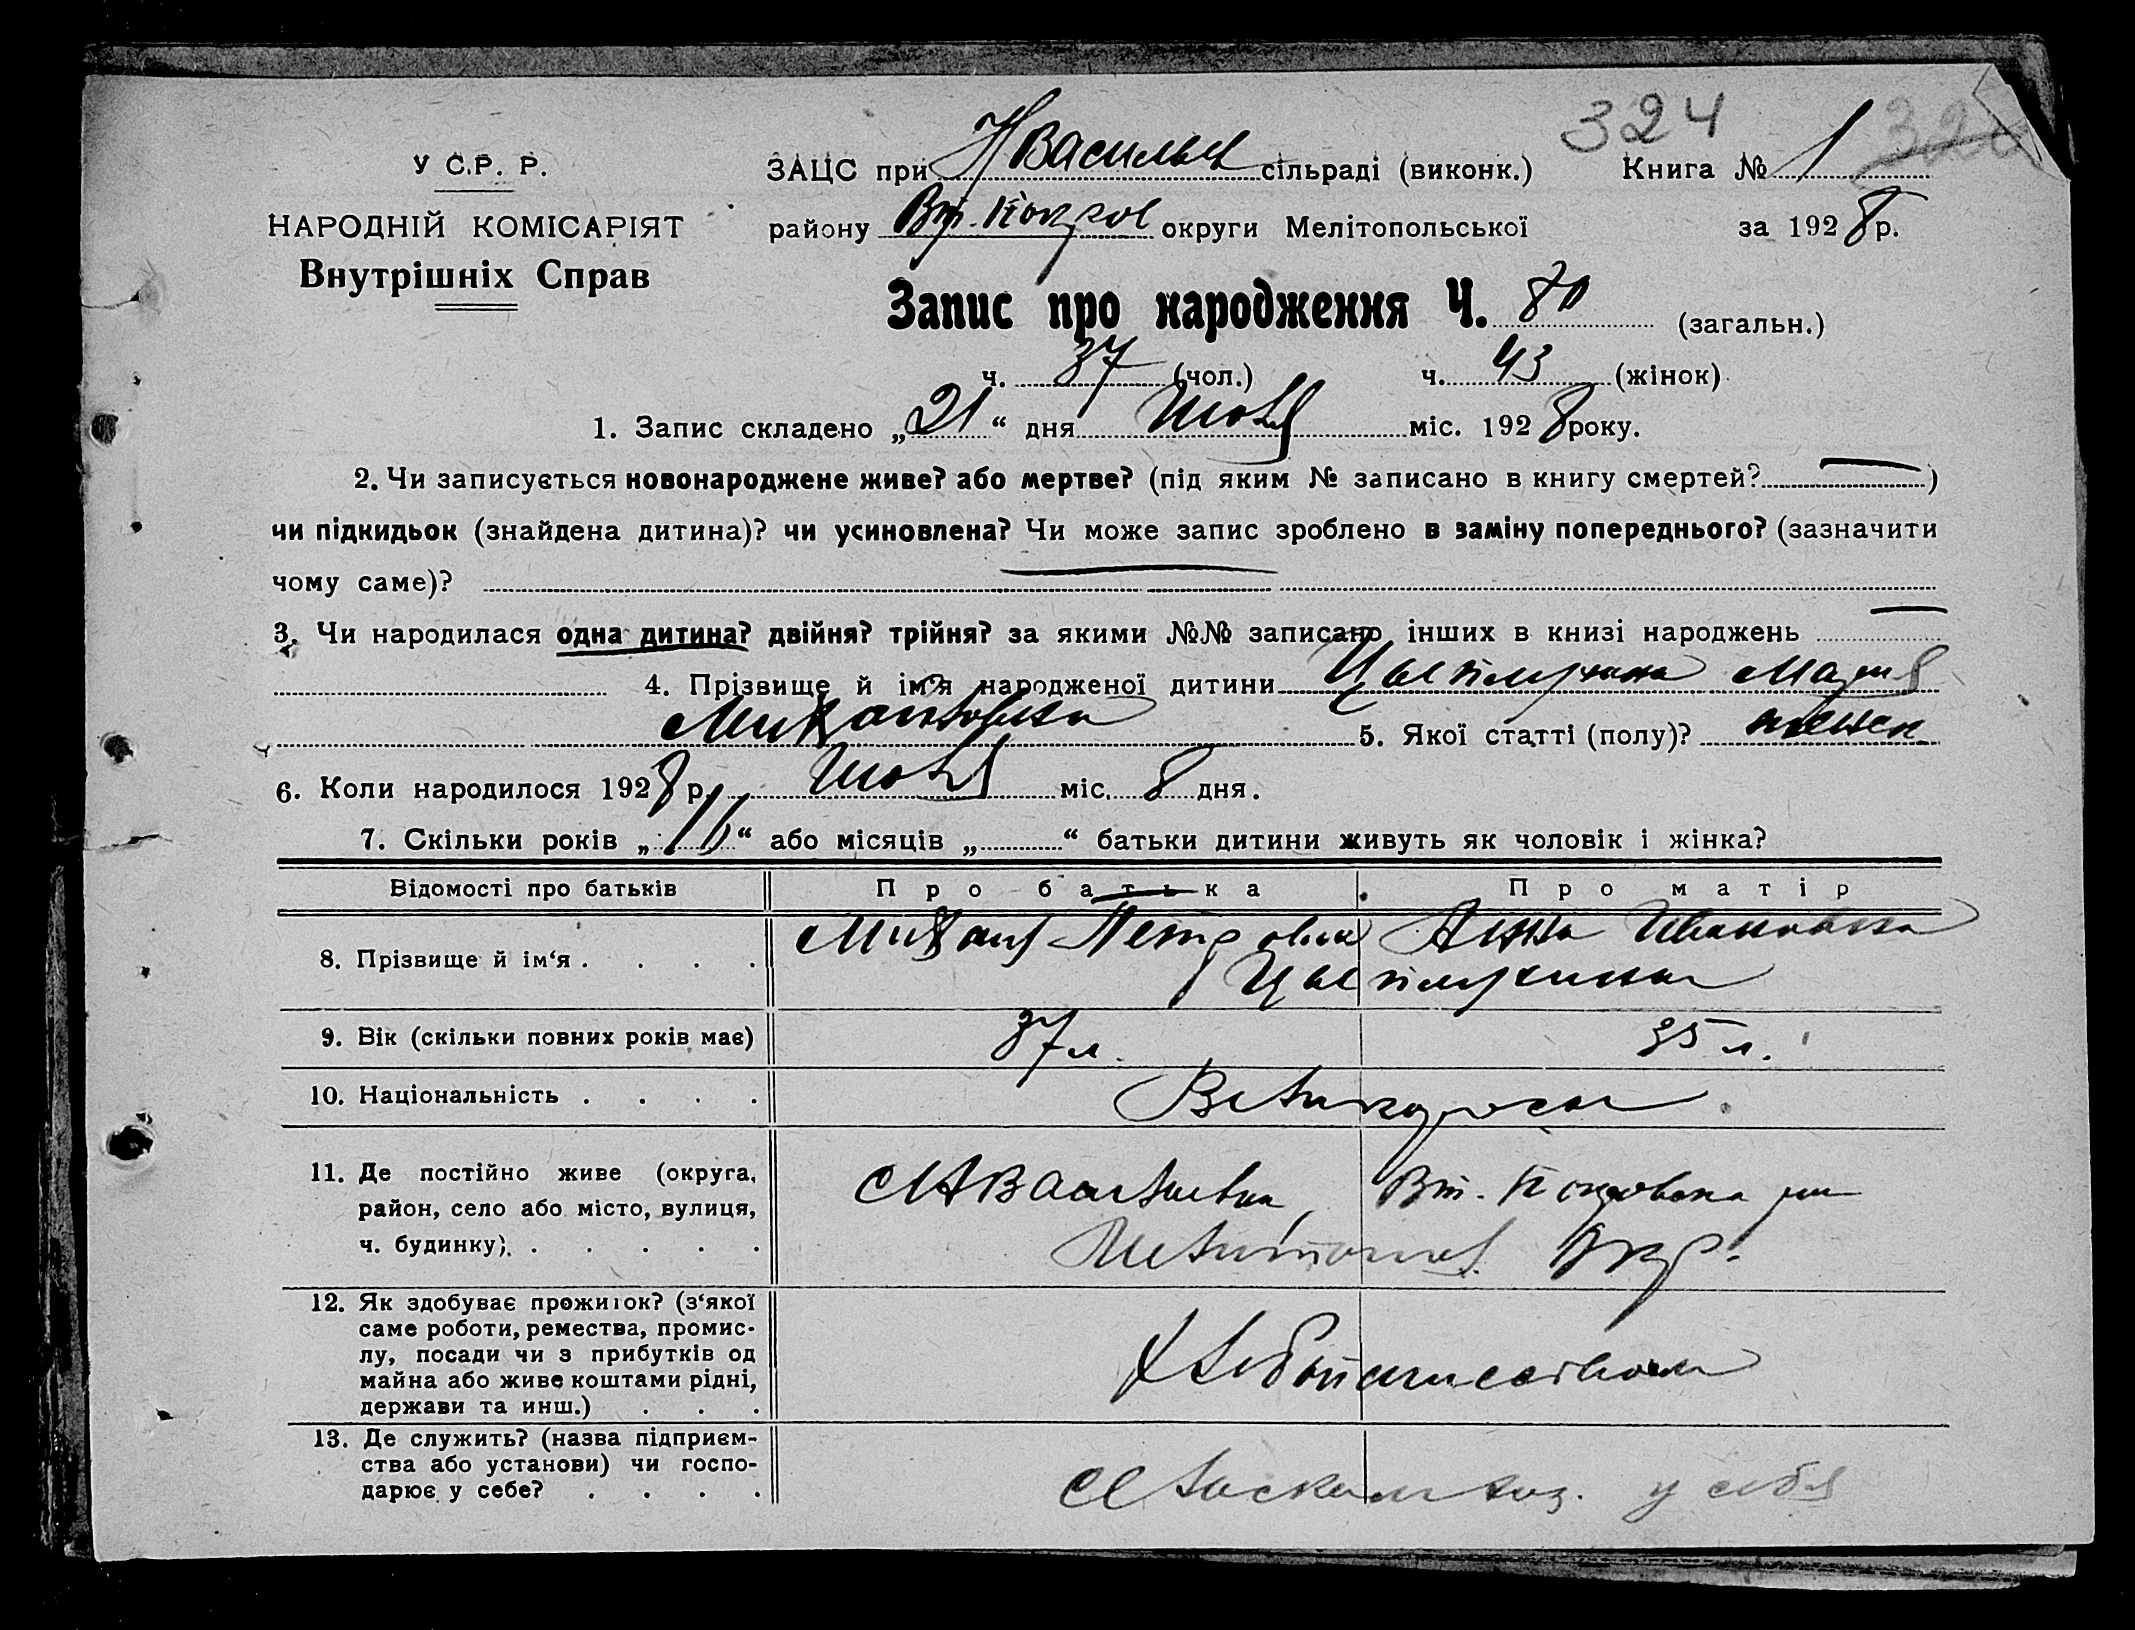 324
У С.Р. Р. ЗАЦС при НВасильев сільраді (виконк.) Книга № 1
НАРОДНІЙ КОМІСАРІЯТ району Вт.-Покров округи Мелітопольської за 1928 р.
Внутрішніх Справ
Запис про народження Ч. 80 (загальн.)
ч. 37 (чол.) ч. 43 (жінок)
1. Запис складено „21“ дня Июля міс. 1928 року.
2. Чи записується новонароджене живе? або мертве? (під яким № записано в книгу смертей? )
чи підкидьок (знайдена дитина)? чи усиновлена? Чи може запис зроблено в заміну попереднього? (зазначити
чому саме)?
3. Чи народилася одна дитина? двійня? трійня? за якими №№ записано інших в книзі народжень
4. Прізвище й ім'я народженої дитини Мария
Михайловна 5. Якої статті (полу)? женск
6. Коли народилося 1928 р. Июля міс. 8 дня.
7. Скільки років „16“ або місяців „ “ батьки дитини живуть як чоловік і жінка?
Відомості про батьків Про батька Про матір
8. Прізвище й ім‘я Михаил Петрович Анна Ивановна
9. Вік (скільки повних років має) 37 л. 35 л.
10. Національність Великоросы
11. Де постійно живе (округа, район, село або місто, вулиця, ч. будинку) Вт.-Покровска Мелитопол. Окр.
12. Як здобуває прожиток? (з‘якої
саме роботи, ремества, промис-
лу, посади чи з прибутків од
майна або живе коштами рідні,
держави та инш.) Хлебопашеством
13. Де служить? (назва підприєм-
ства або установи) чи госпо-
дарює у себе? у себя